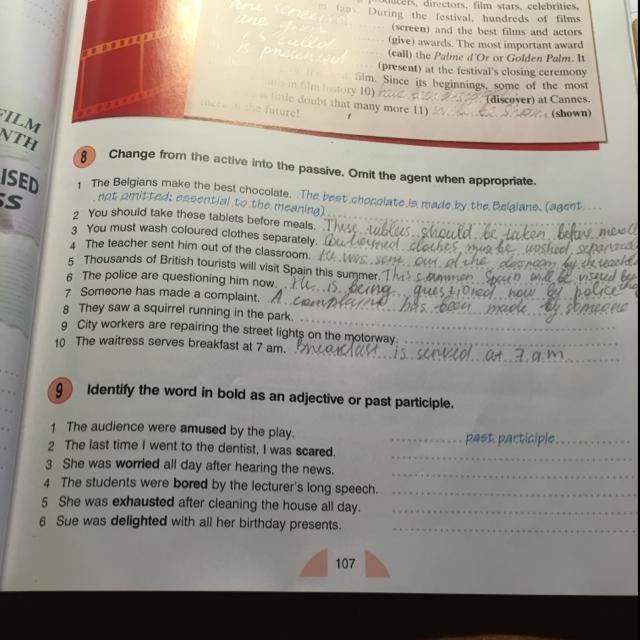 producers, directors, film stars, celebrities,
fans. During the festival, hundreds of films
are screened
(screen) and the best films and actors
(give) awards. The most important award
is called
(call) the Palme d'Or or Golden Palm. It
is presented
(present) at the festival's closing ceremony
film. Since its beginnings, some of the most
in film history 10) (discover) at Cannes.
little doubt that many more 11) (shown)
the future!
FILM
NTH
ISED
SS
8 Change from the active into the passive. Omit the agent when appropriate.
1 The Belgians make the best chocolate. The best chocolate is made by the Belgians. (agent
not omitted; essential to the meaning)
2 You should take these tablets before meals. These tablets should be taken before
3 You must wash coloured clothes separately. clothes must be washed
4 The teacher sent him out of the classroom. He was sent out of the by the
5 Thousands of British tourists will visit Spain this summer. This summer Spain will be visited
6 The police are questioning him now. He is being questioned now by police
7 Someone has made a complaint. A complaint has been made by someone
8 They saw a squirrel running in the park.
9 City workers are repairing the street lights on the motorway.
10 The waitress serves breakfast at 7 am. Breakfast is served at 7 a.m
9 Identify the word in bold as an adjective or past participle.
1 The audience were amused by the play. past participle
2 The last time I went to the dentist, I was scared.
3 She was worried all day after hearing the news.
4 The students were bored by the lecturer's long speech.
5 She was exhausted after cleaning the house all day.
6 Sue was delighted with all her birthday presents.
107